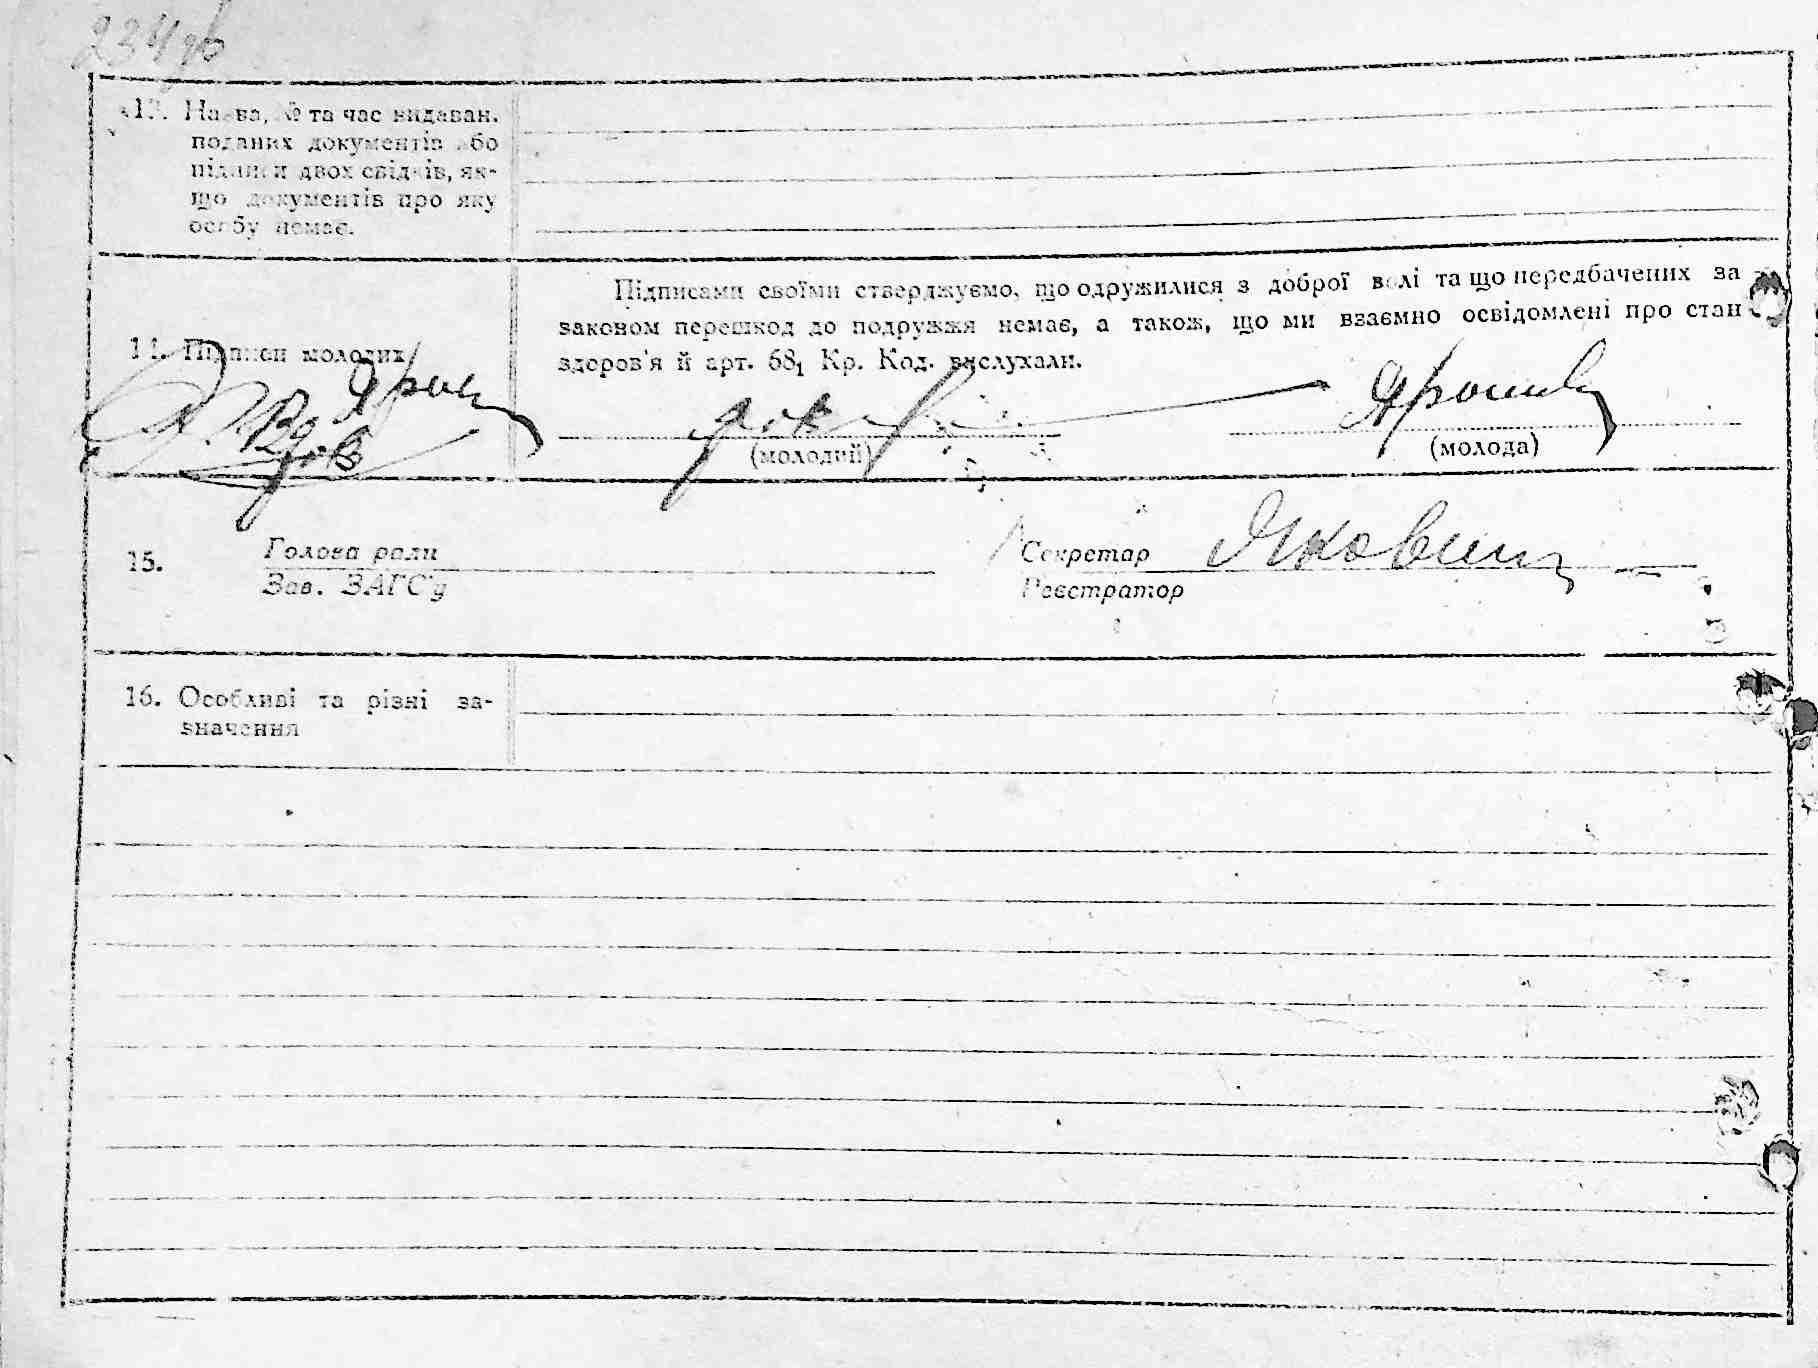 234 зв
13. Назва, № та час видаван.
поданих документів або
підписи двох свідків, як-
що документів про яку
особу немає.
Підписами своїми стверджуємо, що одружилися з доброї волі та що передбачених за
законом перешкод до подружжя немає, а також, що ми взаємно освідомлені про стан
здоров'я й арт. 68₁ Кр. Код. вислухали.
14. Підписи молодих
(молодий)
(молода)
15.
Голова ради
Зав. ЗАГС'у
Секретар
Реєстратор
16. Особливі та різні за-
значення